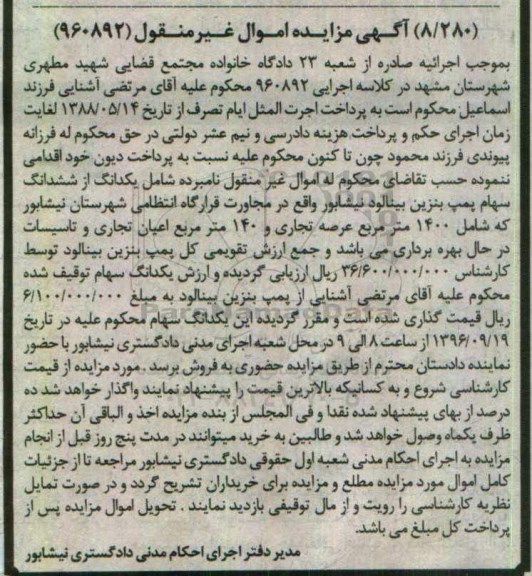 (۸/۲۸۰) آگهی مزایده اموال غیر منقول (۹۶۰۸۹۲)
بموجب اجرائیه صادره از شعبه ۲۳ دادگاه خانواده مجتمع قضایی شهید مطهری
شهرستان مشهد در کلاسه اجرایی ۹۶۰۸۹۲ محکوم علیه آقای مرتضی آشنایی فرزند
اسماعیل محکوم است به پرداخت اجرت المثل ایام تصرف از تاریخ ۱۳۸۸/۰۵/۱۴ لغایت
زمان اجرای حکم و پرداخت هزینه دادرسی و نیم عشر دولتی در حق محکوم له فرزانه
پیوندی فرزند محمود چون تا کنون محکوم علیه نسبت به پرداخت دیون خود اقدامی
ننموده حسب تقاضای محکوم له اموال غیر منقول نامبرده شامل یکدانگ از ششدانگ
سهام پمپ بنزین بینالود نیشابور واقع در مجاورت قرارگاه انتظامی شهرستان نیشابور
که شامل ۱۴۰۰ متر مربع عرصه تجاری و ۱۴۰ متر مربع اعیان تجاری و تاسیسات
در حال بهره برداری می باشد و جمع ارزش تقویمی کل پمپ بنزین بینالود توسط
کارشناس ۳۶/۶۰۰/۰۰۰/۰۰۰ ریال ارزیابی گردیده و ارزش یکدانگ سهام توقیف شده
محکوم علیه آقای مرتضی آشنایی از پمپ بنزین بینالود به مبلغ ۶/۱۰۰/۰۰۰/۰۰۰
ریال قیمت گذاری شده است و مقرر گردیده این یکدانگ سهام محکوم علیه در تاریخ
۱۳۹۶/۰۹/۱۹ از ساعت ۸ الی ۹ در محل شعبه اجرای مدنی دادگستری نیشابور با حضور
نماینده دادستان محترم از طریق مزایده حضوری به فروش برسد . مورد مزایده از قیمت
کارشناسی شروع و به کسانیکه بالاترین قیمت را پیشنهاد نمایند واگذار خواهد شد ده
درصد از بهای پیشنهاد شده نقدا و فی المجلس از بنده مزایده اخذ و الباقی آن حداکثر
ظرف یکماه وصول خواهد شد و طالبین به خرید میتوانند در مدت پنج روز قبل از انجام
مزایده به اجرای احکام مدنی شعبه اول حقوقی دادگستری نیشابور مراجعه تا از جزئیات
کامل اموال مورد مزایده مطلع و مزایده برای خریداران تشریح گردد و در صورت تمایل
نظریه کارشناسی را رویت و از مال توقیفی بازدید نمایند . تحویل اموال مزایده پس از
پرداخت کل مبلغ می باشد.
مدیر دفتر اجرای احکام مدنی دادگستری نیشابور